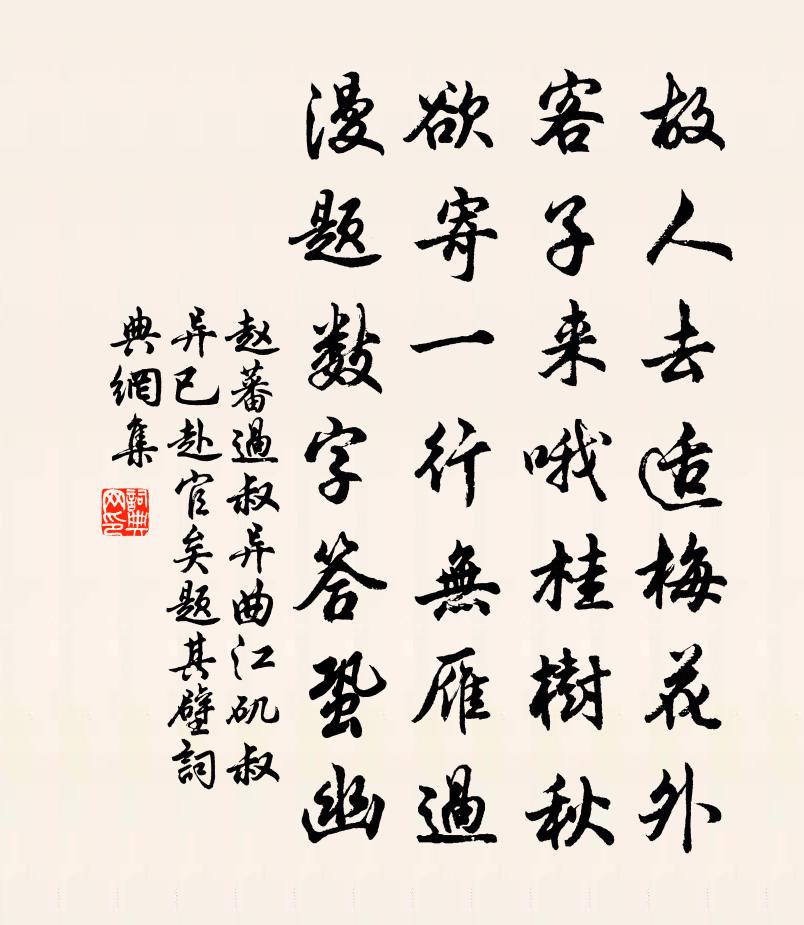 故人去适梅花外
客子来哦桂樹秋
欲寄一行無雁過
漫题数字答蛩幽
赵蕃過叔异曲江矶叔
异已赴官矣题其壁詞
典網集
詞典
网印